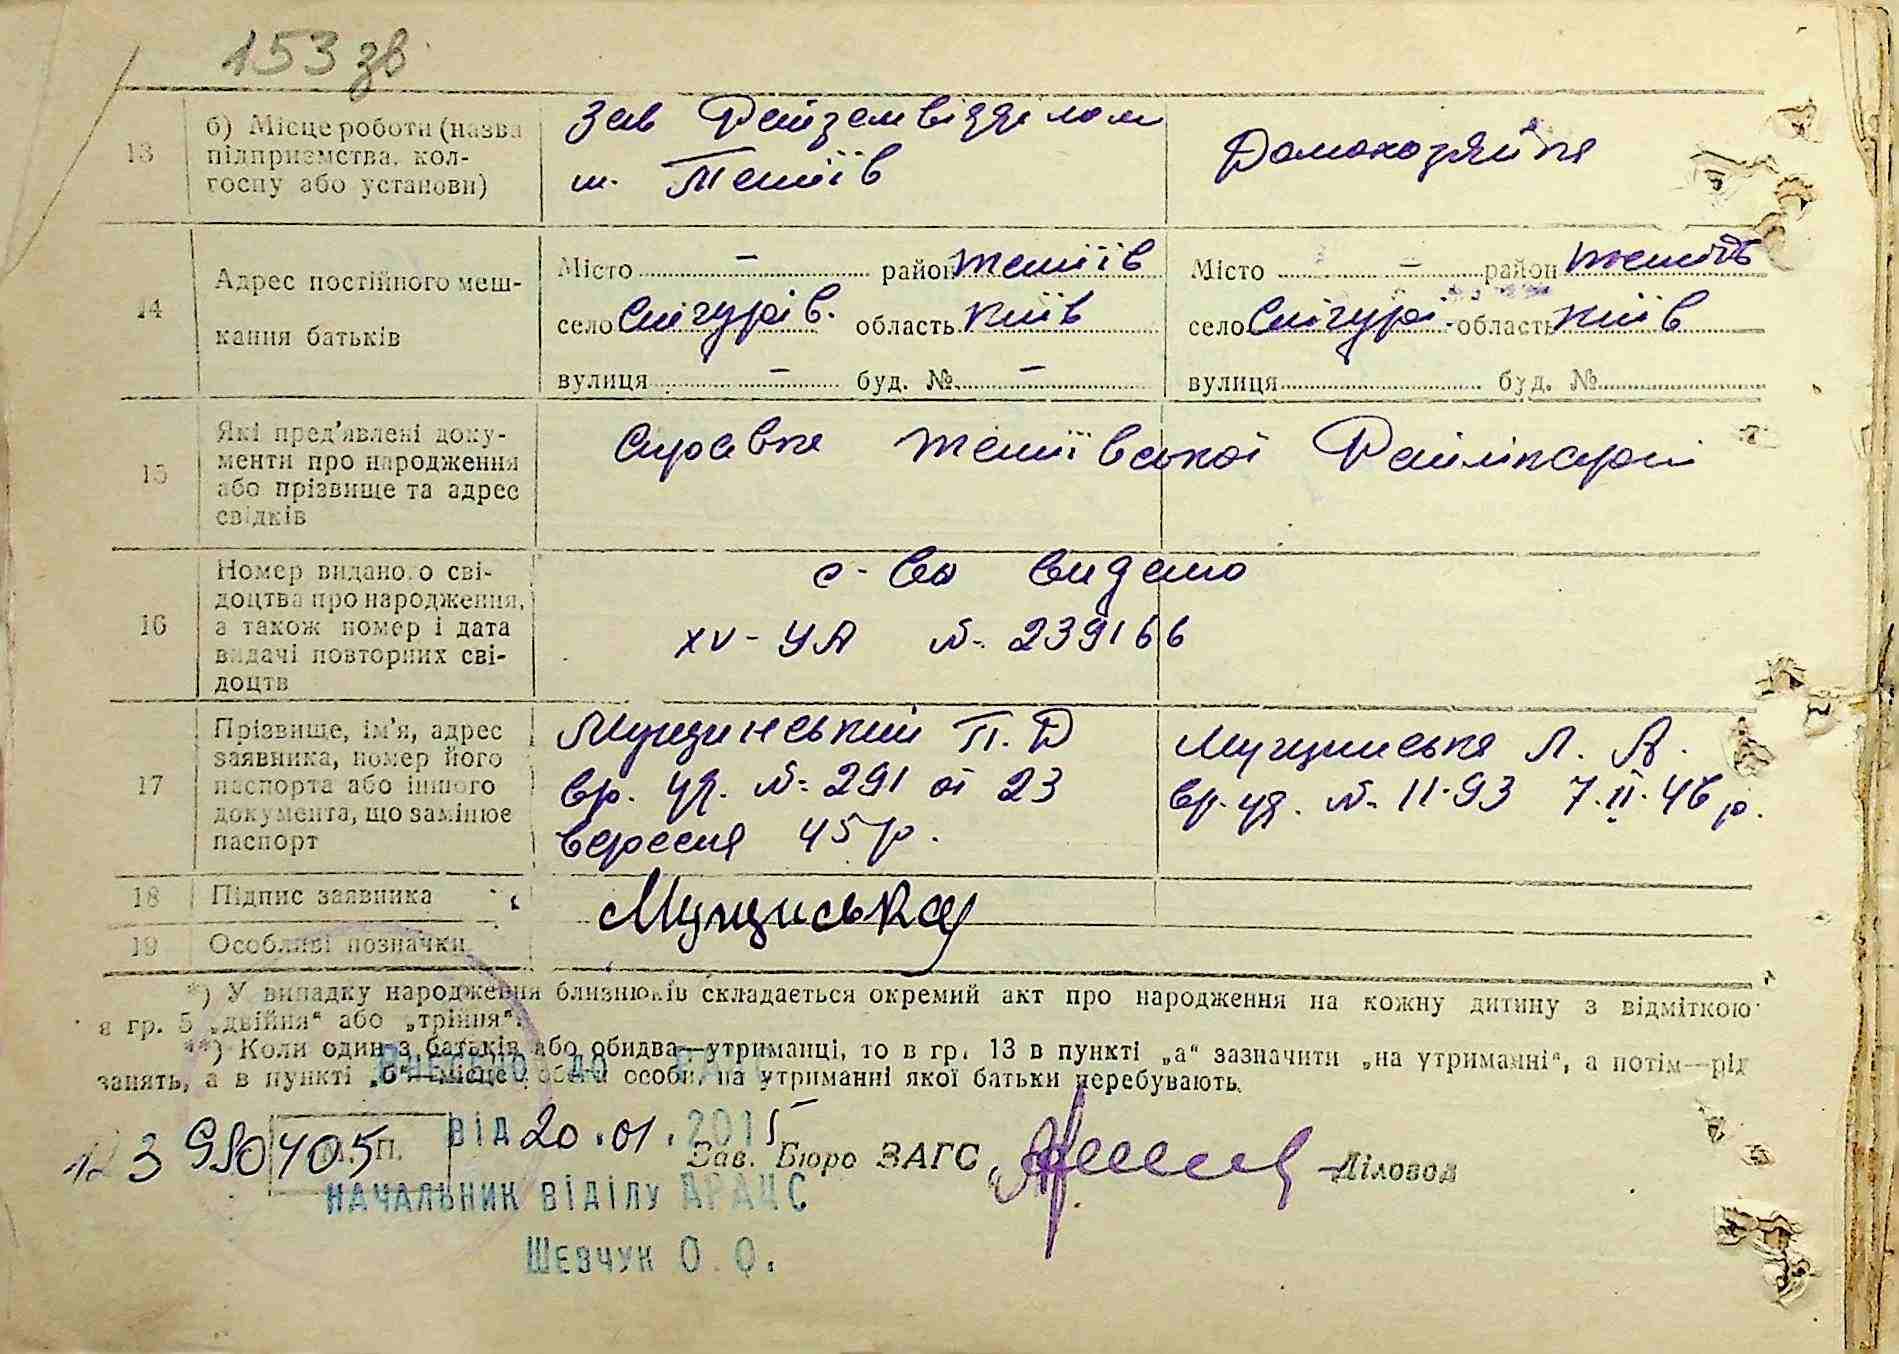 153 зв
13 б) Місце роботи (назва підприємства, колгоспу або установи)
Зав Райземвідділом
м. Тетіїв
Домохозяйка
14 Адрес постійного мешкання батьків
Місто – район Тетіїв
село Снігурів. область Київ
вулиця – буд. № –
Місто – район Тетіїв
село Снігурі. область Київ
вулиця буд. №
15 Які пред'явлені документи про народження або прізвище та адрес свідків
Справка Тетіївської Райлікарні
16 Номер виданого свідоцтва про народження, а також номер і дата видачі повторних свідоцтв
с-во видано
XV-УА № 239166
17 Прізвище, ім'я, адрес заявника, номер його паспорта або іншого документа, що замінює паспорт
Мущинський П. Д
вр. уд. № 291 от 23
вересня 45 р.
Мущинська Л. А.
вр. уд. № 11-93 7.II.46 р.
18 Підпис заявника
Мущинська
19 Особливі позначки
*) У випадку народження близнюків складається окремий акт про народження на кожну дитину з відміткою
в гр. 5 „двійня“ або „трійня“.
**) Коли один з батьків або обидва—утриманці, то в гр. 13 в пункті „а“ зазначити „на утриманні“, а потім—рід
занять, а в пункті „б“—місце роботи особи, на утриманні якої батьки перебувають.
Внесено до
від 20.01.2015
М. П.
Зав. Бюро ЗАГС
Діловод
НАЧАЛЬНИК ВІДІЛУ ДРАЦС
ШЕВЧУК О. О.